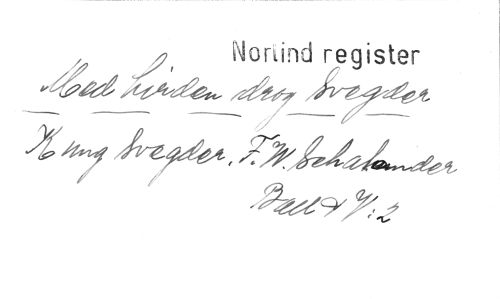 Norlind register
Med hirden drog Svegder
Kung Svegder. F. W. Schalander
Ball & V: 2